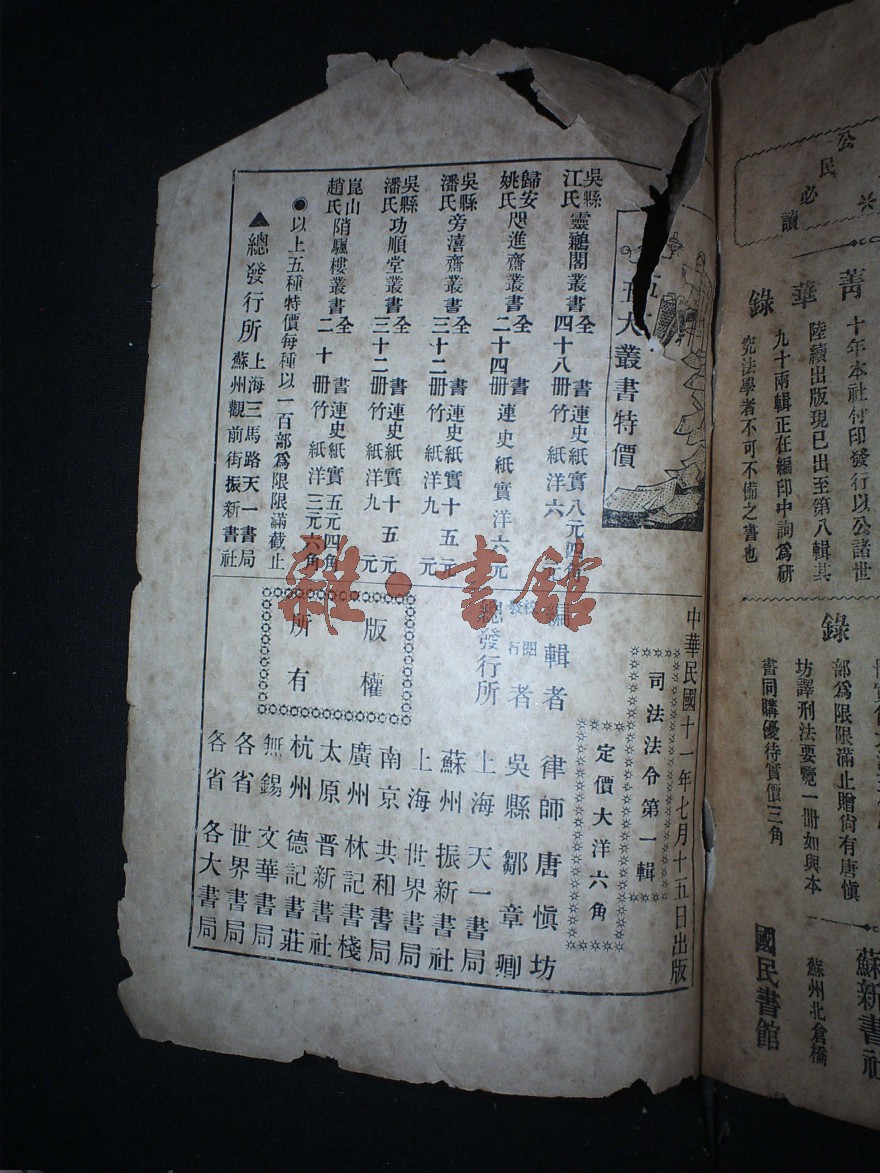 公民必讀
菁華錄
十年本社付印發行以公諸世
陸續出版現已出至第八輯其
九十兩輯正在編印中詢爲研
究法學者不可不備之書也
錄
部爲限限滿止贈尙有唐愼
坊譯刑法要覽一册如與本
書同購優待實價三角
蘇新書社
蘇州北倉橋
國民書館
大叢書特價
吳縣江氏靈鶼閣叢書全書四十八册連史紙實八元四角竹紙洋六元
歸安姚氏咫進齋叢書全書二十四册連史紙實洋六元
吳縣潘氏滂濱齋叢書全書三十二册連史紙實十五元竹紙洋九元
吳縣潘氏功順堂叢書全書三十二册連史紙實十五元竹紙洋九元
崑山趙氏陗颿樓叢書全書二十册連史紙實五元四角竹紙洋三元六角
●以上五種特價每種以一百部爲限限滿截止
▲總發行所上海三馬路天一書局蘇州觀前街振新書社
中華民國十一年七月十五日出版
司法法令第一輯
定價大洋六角
編輯者 律師唐愼坊
校閱發行者 吳縣鄒章卿
總發行所 上海天一書局
蘇州振新書社
上海世界書局
南京共和書局
廣州林記書棧
太原晋新書社
杭州德記書莊
無錫文華書局
各省世界書局
各省各大書局
版權所有
雜·書館